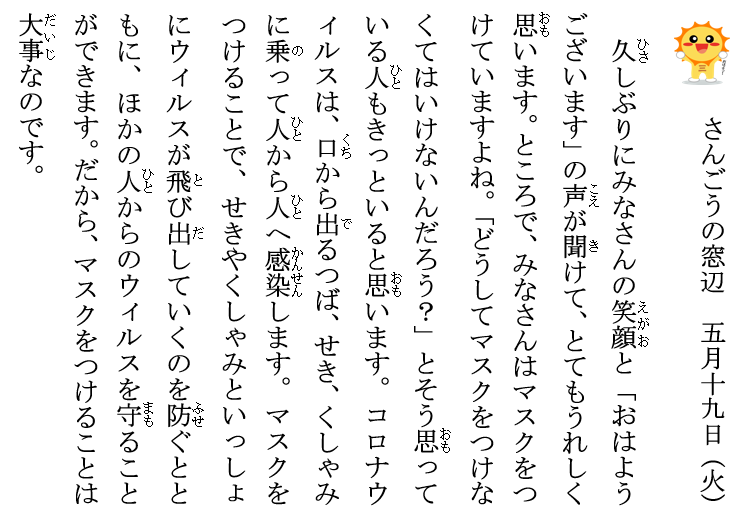 さんごうの窓辺　五月十九日（火）
久しぶりにみなさんの笑顔と「おはよう
ございます」の声が聞けて、とてもうれしく
思います。ところで、みなさんはマスクをつ
けていますよね。「どうしてマスクをつけな
くてはいけないんだろう？」とそう思って
いる人もきっといると思います。コロナウ
ィルスは、口から出るつば、せき、くしゃみ
に乗って人から人へ感染します。マスクを
つけることで、せきやくしゃみといっしょ
にウィルスが飛び出していくのを防ぐとと
もに、ほかの人からのウィルスを守ること
ができます。だから、マスクをつけることは
大事なのです。